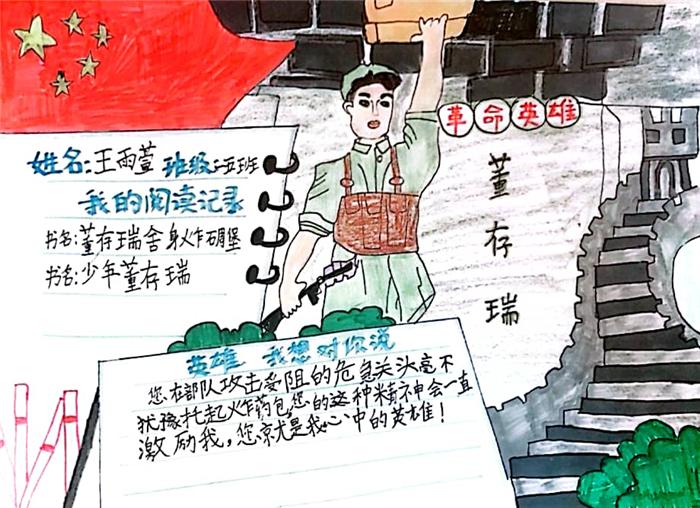 革命英雄
董存瑞
姓名:王雨萱 班级:五班
我的阅读记录
书名:董存瑞舍身炸碉堡
书名:少年董存瑞
英雄 我想对你说
您在部队攻击受阻的危急关头毫不
犹豫托起炸药包,您的这种精神会一直
激励我,您就是我心中的英雄!